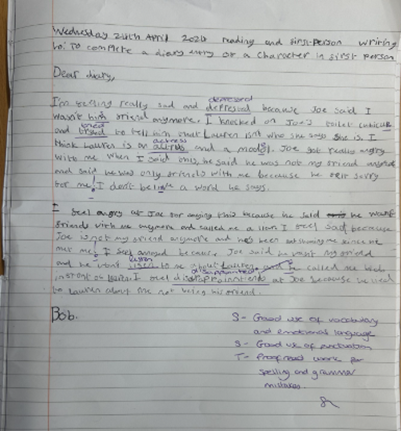 Wednesday 24th April 2024 reading and first-person writing
LO: To complete a diary entry of a character in first person
Dear diary,
I'm feeling really sad and depressed because Joe said I
wasn't his friend anymore. I knocked on Joe's toilet cubicle
and tried to tell him that Lauren isn't who she says she is. I
think Lauren is an actress and a model. Joe got really angry
with me when I said this, he said he was not my friend anymore
and said he was only friends with me because he felt sorry
for me! I don't believe a word he says.
I feel angry at Joe for saying this because he said he wasn't
friends with me anymore and called me a liar. I feel sad because
Joe is not my friend anymore and
met me! I feel annoyed because Joe said he wasn't my friend
and he won't listen to me about Lauren and he called me
instead of I feel at Joe because he lied
to Lauren about me not being his friend.
Bob.
S- Good use of vocabulary
and emotional language
S- Good use of punctuation
T- Proof read work for
spelling and grammar
mistakes.